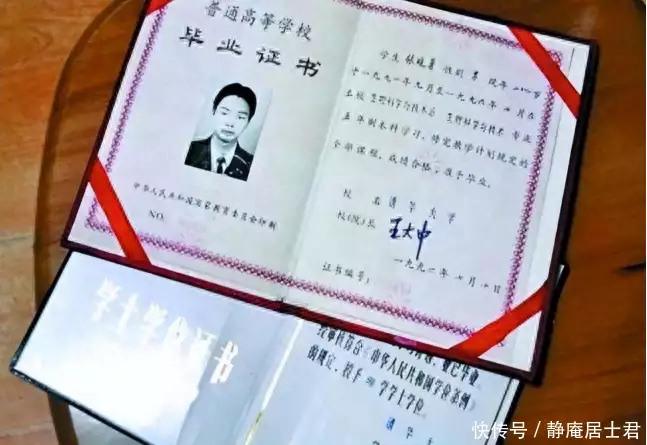 普通高等学校
毕业证书
中华人民共和国国家教育委员会印制
NO.
学生 张晓勇 性别 男 现年
于一九九一年九月至一九九六年七月在
本校 生物科学与技术系 生物科学与技术 专业
五年制本科学习,修完教学计划规定的
全部课程,成绩合格,准予毕业。
校 名 清华大学
校(院)长 王大中
证书编号:
学士学位证书
的规定,授予 学学士学位
快传号 / 静庵居士君